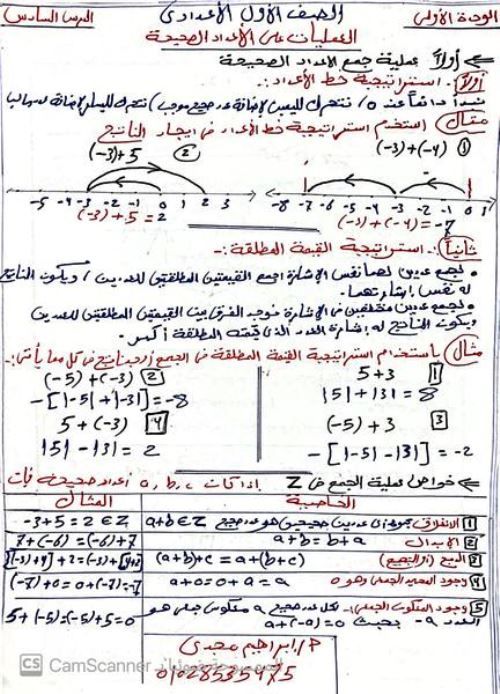 الوحدة الأولى
الصف الأول الاعدادى
الدرس السادس
العمليات على الأعداد الصحيحة
أولاً عملية جمع الأعداد الصحيحة
أولاً: استراتيجية خط الأعداد:-
نبدأ دائماً عند 0 / نتحرك لليمين لإضافة عدد صحيح موجب / نتحرك لليسار لإضافة
مثال استخدم استراتيجية خط الأعداد فى إيجاد الناتج
① (-3)+(-4)
② (-3)+5
-8 -7 -6 -5 -4 -3 -2 -1 0 1
-5 -4 -3 -2 -1 0 1 2 3
(-3)+(-4) = -7
(-3)+5 = 2
ثانياً: استراتيجية القيمة المطلقة:-
• لجمع عددين لهما نفس الإشارة اجمع القيمتين المطلقتين للعددين / ويكون الناتج
له نفس إشارتهما.
• لجمع عددين مختلفين فى الإشارة نوجد الفرق بين القيمتين المطلقتين للعددين
ويكون الناتج له إشارة العدد الذى قيمته المطلقة أكبر.
مثال باستخدام استراتيجية القيمة المطلقة فى الجمع أوجد ناتج كل مما يأتى:-
1 5+3
|5|+|3| = 8
2 (-5)+(-3)
-[|-5|+|-3|] = -8
3 (-5)+3
-[|-5|-|3|] = -2
4 5+(-3)
|5|-|3| = 2
خواص عملية الجمع فى Z إذا كانت a, b, c أعداد صحيحة فإن
الخاصية المثال
1 الانغلاق مجموع أى عددين صحيحين هو عدد صحيح a+b∈Z -3+5=2∈Z
2 الإبدال a+b=b+a 7+(-6)=(-6)+7
3 (a+b)+c=a+(b+c)
4 وجود المحايد الجمعى وهو 0 a+0=0+a=a (-7)+0=0+(-7)=-7
5 وجود المعكوس الجمعى:- لكل عدد صحيح a معكوس جمعى هو
العدد -a بحيث a+(-a)=0 5+(-5)=(-5)+5=0
أ/ إبراهيم مجدى
CS CamScanner الممسوحة ضوئيا بـ